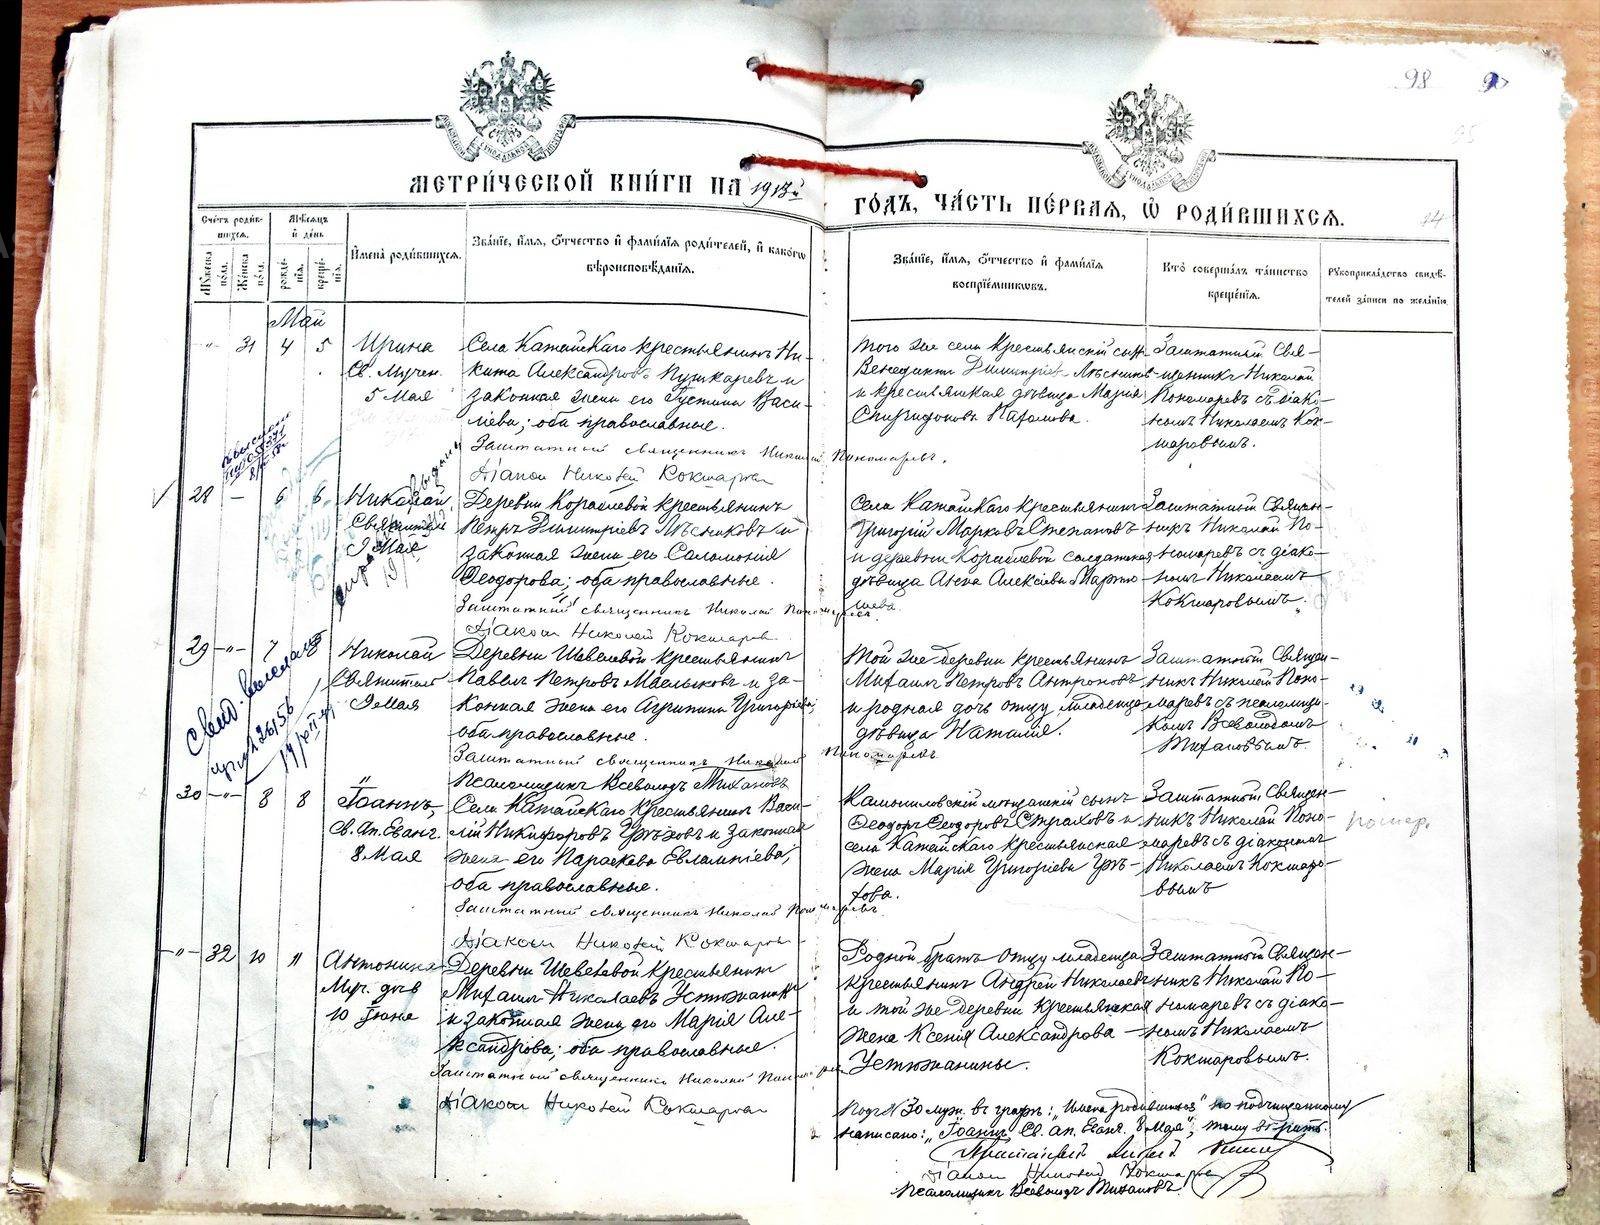 98
МЕТРИ́ЧЕСКОЙ КНИ́ГИ НА 1913й
ГО́ДЪ, ЧА́СТЬ ПЕ́РВАЯ, Ѡ РОДИ́ВШИХСЯ.
Сче́тъ роди́в-
шихся.
Мѣ́сяцъ
и́ де́нь
Му́жеска по́ла.
Же́нска по́ла.
рожде́-
нія.
креще́-
нія.
И́мена̀ роди́вшихся.
Зва́ніе, и́мя, ѻ́тчество и́ фами́лїя роди́телей, и́ како́гѡ
вѣроисповѣ́данія.
Зва́ніе, и́мя, ѻ́тчество и́ фами́лїя
воспрїе́мниковъ.
Кто̀ соверша́лъ та́инство
креще́нїя.
Рꙋкоприкла́дство свидѣ́-
телей за́писи по жела́нїю.
Май
" 31 4 5
Ирина
Св. Мучен.
5 Мая
Села Катайскаго крестьянинъ Ни-
кита Александровъ Пушкаревъ и
законная жена его Іустина Васи-
льева; оба православные.
Заштатный священникъ Николай Пономаревъ.
Діаконъ Николай Кокшаровъ
того же села крестьянскій сынъ
Венедиктъ Димитріевъ Лѣсниковъ
и крестьянская дѣвица Марія
Спиридонова Пахомова.
Заштатный Свя-
щенникъ Николай
Пономаревъ съ діако-
номъ Николаемъ Кок-
шаровымъ.
28 — 6 6
Николай
Святителя
9 Мая
Деревни Корюлевой крестьянинъ
Петръ Димитріевъ Лѣсниковъ и
законная жена его Саломонія
Ѳеодорова; оба православные.
Заштатный священникъ Николай Пономаревъ.
Діаконъ Николай Кокшаровъ
Села Катайскаго крестьянинъ
Григорій Марковъ Степановъ
и деревни Корюлевой солдатская
дѣвица Анна Алексіева Марты-
шева.
Заштатный Священ-
никъ Николай По-
номаревъ съ діако-
номъ Николаемъ
Кокшаровымъ.
29 " 7 8
Николай
Святителя
9 Мая
Деревни Шевелевой крестьянинъ
Павелъ Петровъ Мыльниковъ и за-
конная жена его Агрипина Григорьева;
оба православные.
Заштатный священникъ Николай Пономаревъ
Псаломщикъ Всеволодъ Тихановъ
той же деревни крестьянинъ
Михаилъ Петровъ Антроповъ
и родная дочь отцу младенца
дѣвица Наталія.
Заштатный Священ-
никъ Николай Поно-
маревъ съ псаломщи-
комъ Всеволодомъ
Тихановымъ
Свид. выслано
30 " 8 8
Іоаннъ,
Св. Ап. Еванг.
8 Мая
Села Катайскаго крестьянинъ Васи-
лій Никифоровъ Грѣховъ и законная
жена его Параскева Евлампіева;
оба православные.
Заштатный священникъ Николай Пономаревъ.
Діаконъ Николай Кокшаровъ
Камышловскій мѣщанскій сынъ
Ѳеодоръ Ѳеодоровъ Страховъ и
села Катайскаго крестьянская
жена Марія Григоріева Грѣ-
хова.
Заштатный Священ-
никъ Николай Поно-
маревъ съ діакономъ
Николаемъ Кокшаро-
вымъ
" 32 10 11
Антонина
Муч. дѣв
10 Іюня
Деревни Шевелевой крестьянинъ
Михаилъ Николаевъ Устюжанинъ
и законная жена его Марія Але-
ксандрова; оба православные.
Заштатный священникъ Николай Пономаревъ
Діаконъ Николай Кокшаровъ
Родной братъ отцу младенца
крестьянинъ Андрей Николаевъ
и той же деревни крестьянская
жена Ксенія Александрова
Устюжанины.
Заштатный Священ-
никъ Николай По-
номаревъ съ діако-
номъ Николаемъ
Кокшаровымъ.
Подъ № 30 муж. въ графѣ: "Имена родившихся" по подчищенному
написано: "Іоаннъ, Св. ап. Еванг. 8 Мая", тому вѣрить.
Діаконъ Николай Кокшаровъ
Псаломщикъ Всеволодъ Тихановъ.